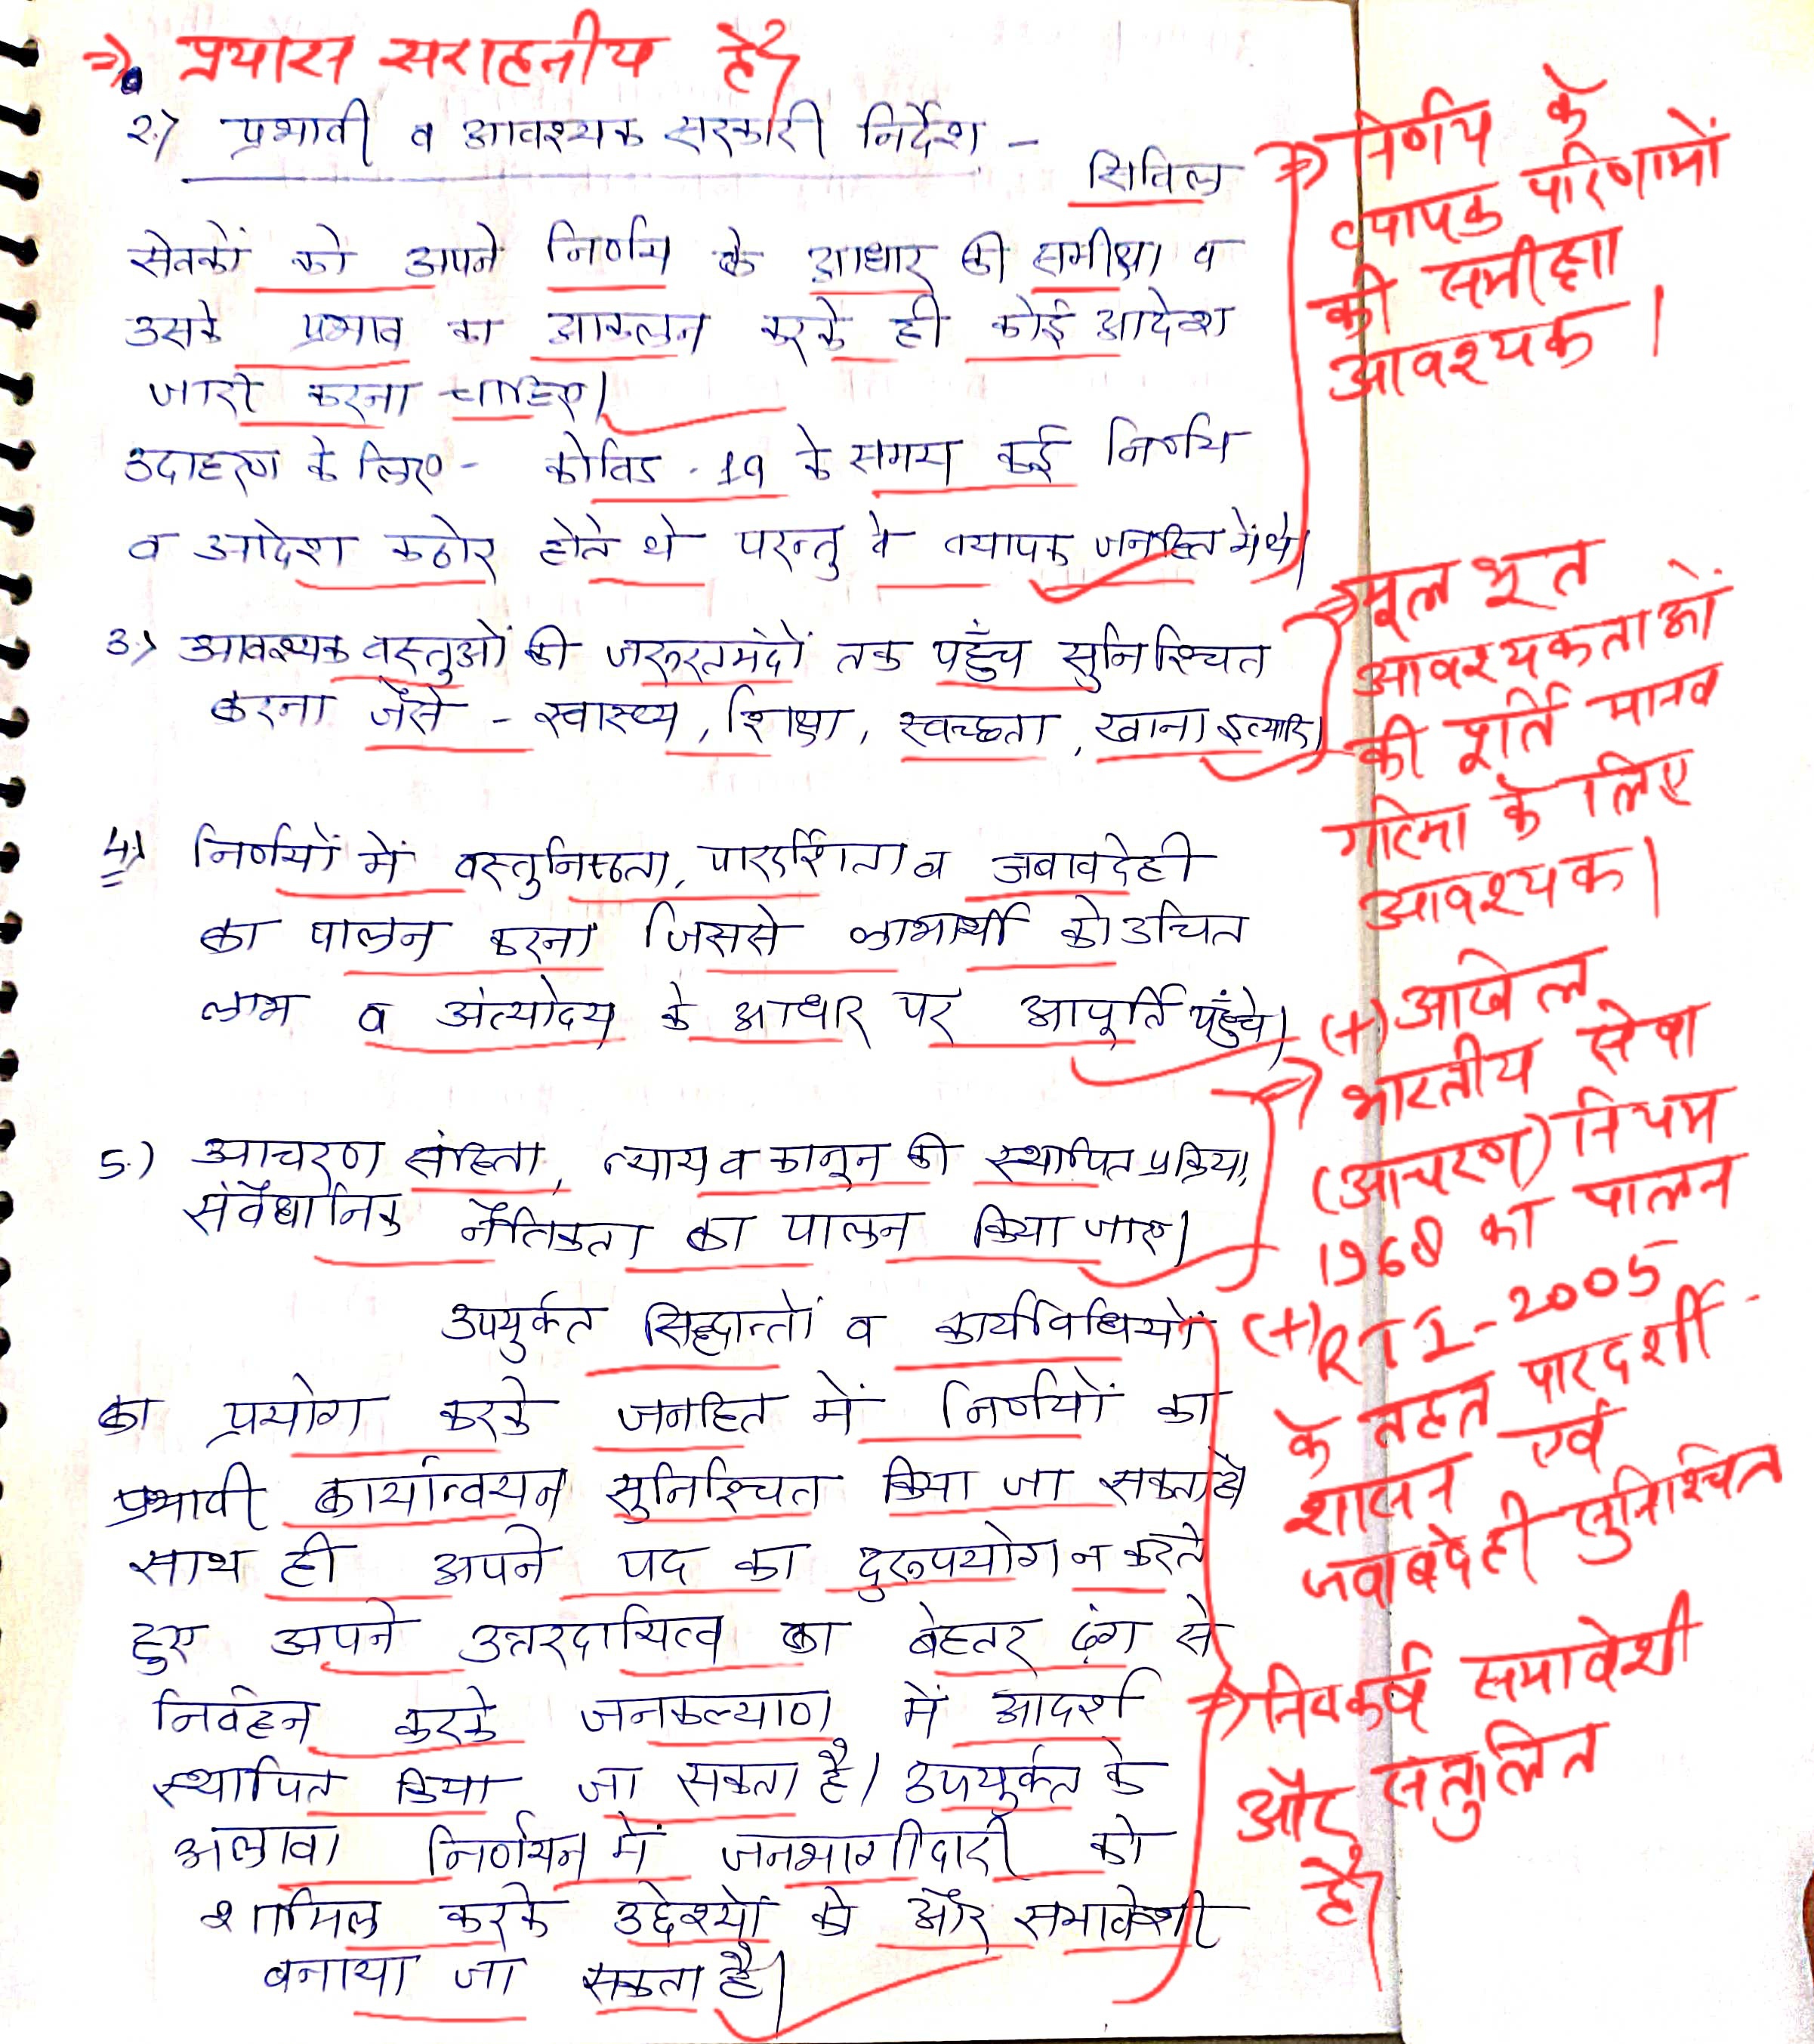 ⇒ प्रयास सराहनीय है।
2.) प्रभावी व आवश्यक सरकारी निर्देश -
सिविल
सेवकों को अपने निर्णय के आधार की समीक्षा व
उसके प्रभाव का आकलन करके ही कोई आदेश
जारी करना चाहिए।
उदाहरण के लिए - कोविड - 19 के समय कई निर्णय
व आदेश कठोर होते थे परन्तु वे व्यापक जनहित में थे।
3.) आवश्यक वस्तुओं की जरूरतमंदों तक पहुँच सुनिश्चित
करना जैसे - स्वास्थ्य, शिक्षा, स्वच्छता, खाना इत्यादि।
4.) निर्णयों में वस्तुनिष्ठता, पारदर्शिता व जवाबदेही
का पालन करना जिससे लाभार्थी को उचित
लाभ व अंत्योदय के आधार पर आपूर्ति पहुँचे।
5.) आचरण संहिता, न्याय व कानून की स्थापित प्रक्रिया,
संवैधानिक नैतिकता का पालन किया जाए।
उपर्युक्त सिद्धान्तों व कार्यविधियों
का प्रयोग करके जनहित में निर्णयों का
प्रभावी कार्यान्वयन सुनिश्चित किया जा सकता है
साथ ही अपने पद का दुरूपयोग न करते
हुए अपने उत्तरदायित्व का बेहतर ढंग से
निर्वहन करके जनकल्याण में आदर्श
स्थापित किया जा सकता है। उपर्युक्त के
अलावा निर्णयन में जनभागीदारी को
शामिल करके उद्देश्यों को और समावेशी
बनाया जा सकता है।
⇒ निर्णय के
व्यापक परिणामों
की समीक्षा
आवश्यक।
⇒ मूलभूत
आवश्यकताओं
की पूर्ति मानव
गरिमा के लिए
आवश्यक।
(+) अखिल
भारतीय सेवा
(आचरण) नियम
1968 का पालन
(+) RTI-2005
के तहत पारदर्शी
शासन एवं
जवाबदेही सुनिश्चित
⇒ निष्कर्ष समावेशी
और सन्तुलित
है।